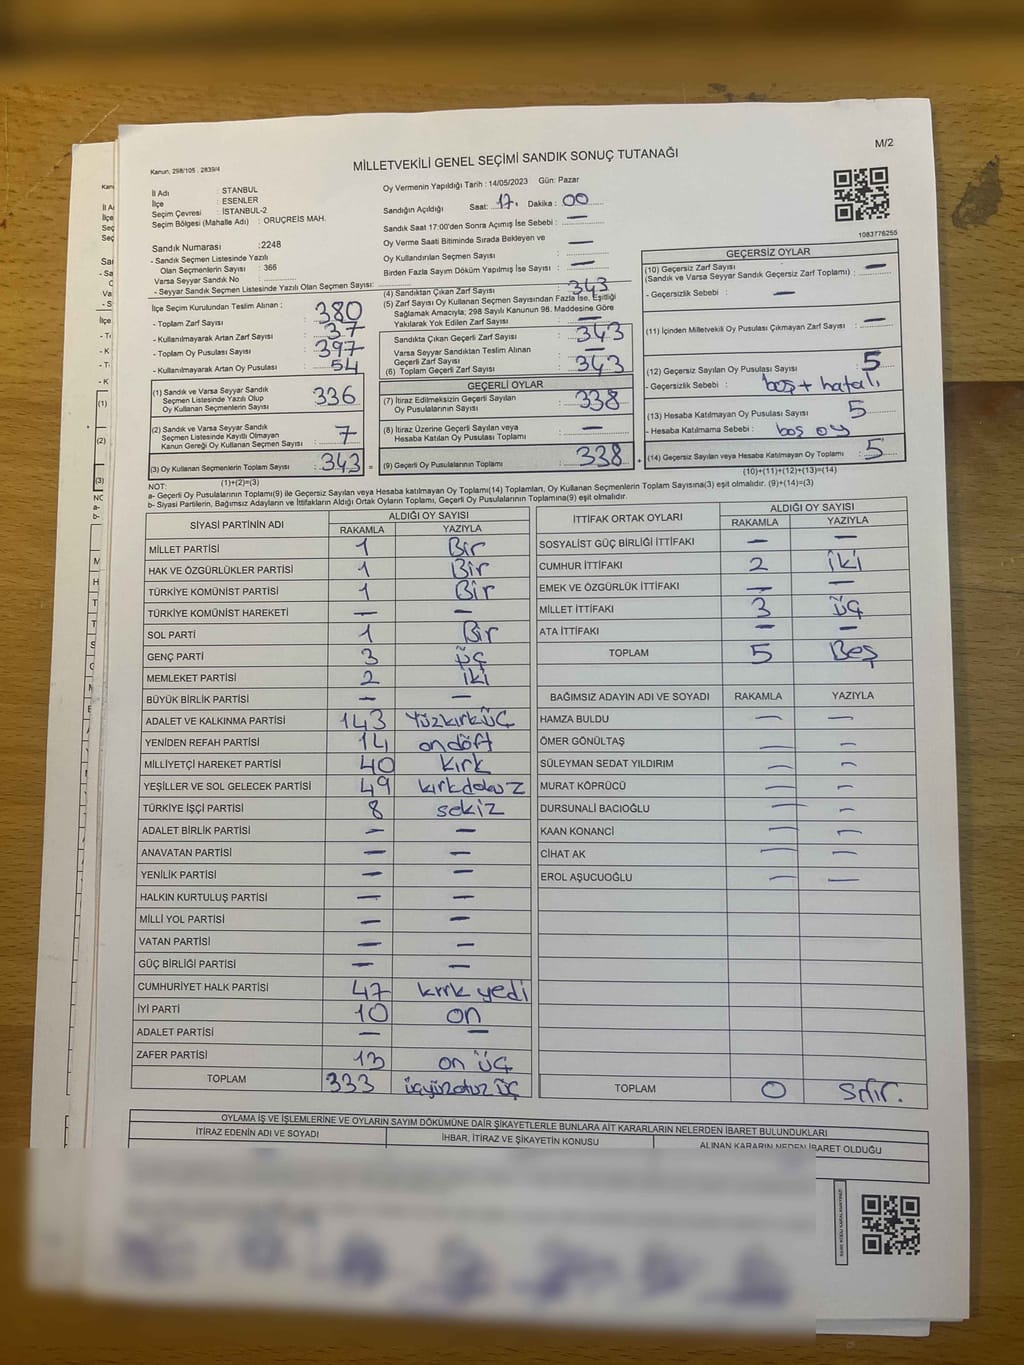 M/2
Kanun, 298/105 , 2839/4
MİLLETVEKİLİ GENEL SEÇİMİ SANDIK SONUÇ TUTANAĞI
İl Adı : STANBUL
İlçe : ESENLER
Seçim Çevresi : İSTANBUL-2
Seçim Bölgesi (Mahalle Adı) : ORUÇREİS MAH.
Sandık Numarası :2248
- Sandık Seçmen Listesinde Yazılı
Olan Seçmenlerin Sayısı : 366
Varsa Seyyar Sandık No :
- Seyyar Sandık Seçmen Listesinde Yazılı Olan Seçmen Sayısı:
Oy Vermenin Yapıldığı Tarih : 14/05/2023 Gün: Pazar
Sandığın Açıldığı Saat: 17. Dakika : 00
Sandık Saat 17:00'den Sonra Açımış İse Sebebi : —
Oy Verme Saati Bitiminde Sırada Bekleyen ve
Oy Kullandırılan Seçmen Sayısı : —
Birden Fazla Sayım Döküm Yapılmış İse Sayısı : —
1083776255
İlçe Seçim Kurulundan Teslim Alınan :
- Toplam Zarf Sayısı : 380
- Kullanılmayarak Artan Zarf Sayısı : 37
- Toplam Oy Pusulası Sayısı : 397
- Kullanılmayarak Artan Oy Pusulası : 54
(1) Sandık ve Varsa Seyyar Sandık
Seçmen Listesinde Yazılı Olup
Oy Kullanan Seçmenlerin Sayısı : 336
(2) Sandık ve Varsa Seyyar Sandık
Seçmen Listesinde Kayıtlı Olmayan
Kanun Gereği Oy Kullanan Seçmen Sayısı : 7
(3) Oy Kullanan Seçmenlerin Toplam Sayısı : 343 =
(1)+(2)=(3)
(4) Sandıktan Çıkan Zarf Sayısı : 343
(5) Zarf Sayısı Oy Kullanan Seçmen Sayısından Fazla İse, Eşitliği
Sağlamak Amacıyla; 298 Sayılı Kanunun 98. Maddesine Göre
Yakılarak Yok Edilen Zarf Sayısı : —
Sandıkta Çıkan Geçerli Zarf Sayısı : 343
Varsa Seyyar Sandıktan Teslim Alınan
Geçerli Zarf Sayısı : —
(6) Toplam Geçerli Zarf Sayısı : 343
GEÇERLİ OYLAR
(7) İtiraz Edilmeksizin Geçerli Sayılan
Oy Pusulalarının Sayısı : 338
(8) İtiraz Üzerine Geçerli Sayılan veya
Hesaba Katılan Oy Pusulası Toplamı : —
(9) Geçerli Oy Pusulalarının Toplamı : 338 +
GEÇERSİZ OYLAR
(10) Geçersiz Zarf Sayısı
(Sandık ve Varsa Seyyar Sandık Geçersiz Zarf Toplamı) : —
- Geçersizlik Sebebi : —
(11) İçinden Milletvekili Oy Pusulası Çıkmayan Zarf Sayısı : —
(12) Geçersiz Sayılan Oy Pusulası Sayısı : 5
- Geçersizlik Sebebi : boş + hatalı
(13) Hesaba Katılmayan Oy Pusulası Sayısı : 5
- Hesaba Katılmama Sebebi : boş oy
(14) Geçersiz Sayılan veya Hesaba Katılmayan Oy Toplamı : 5
(10)+(11)+(12)+(13)=(14)
NOT:
a- Geçerli Oy Pusulalarının Toplamı(9) ile Geçersiz Sayılan veya Hesaba katılmayan Oy Toplamı(14) Toplamları, Oy Kullanan Seçmenlerin Toplam Sayısına(3) eşit olmalıdır. (9)+(14)=(3)
b- Siyasi Partilerin, Bağımsız Adayların ve İttifakların Aldığı Ortak Oyların Toplamı, Geçerli Oy Pusulalarının Toplamına(9) eşit olmalıdır.
SİYASİ PARTİNİN ADI ALDIĞI OY SAYISI
RAKAMLA YAZIYLA
MİLLET PARTİSİ 1 Bir
HAK VE ÖZGÜRLÜKLER PARTİSİ 1 Bir
TÜRKİYE KOMÜNİST PARTİSİ 1 Bir
TÜRKİYE KOMÜNİST HAREKETİ — —
SOL PARTİ 1 Bir
GENÇ PARTİ 3 üç
MEMLEKET PARTİSİ 2 iki
BÜYÜK BİRLİK PARTİSİ — —
ADALET VE KALKINMA PARTİSİ 143 Yüzkırküç
YENİDEN REFAH PARTİSİ 14 ondört
MİLLİYETÇİ HAREKET PARTİSİ 40 kırk
YEŞİLLER VE SOL GELECEK PARTİSİ 49 kırkdokuz
TÜRKİYE İŞÇİ PARTİSİ 8 sekiz
ADALET BİRLİK PARTİSİ — —
ANAVATAN PARTİSİ — —
YENİLİK PARTİSİ — —
HALKIN KURTULUŞ PARTİSİ — —
MİLLİ YOL PARTİSİ — —
VATAN PARTİSİ — —
GÜÇ BİRLİĞİ PARTİSİ — —
CUMHURİYET HALK PARTİSİ 47 kırk yedi
İYİ PARTİ 10 on
ADALET PARTİSİ — —
ZAFER PARTİSİ 13 on üç
TOPLAM 333 üçyüzotuz üç
İTTİFAK ORTAK OYLARI ALDIĞI OY SAYISI
RAKAMLA YAZIYLA
SOSYALİST GÜÇ BİRLİĞİ İTTİFAKI — —
CUMHUR İTTİFAKI 2 iki
EMEK VE ÖZGÜRLÜK İTTİFAKI — —
MİLLET İTTİFAKI 3 üç
ATA İTTİFAKI — —
TOPLAM 5 Beş
BAĞIMSIZ ADAYIN ADI VE SOYADI RAKAMLA YAZIYLA
HAMZA BULDU — —
ÖMER GÖNÜLTAŞ — —
SÜLEYMAN SEDAT YILDIRIM — —
MURAT KÖPRÜCÜ — —
DURSUNALİ BACIOĞLU — —
KAAN KONANCİ — —
CİHAT AK — —
EROL AŞUCUOĞLU — —
TOPLAM 0 Sıfır.
OYLAMA İŞ VE İŞLEMLERİNE VE OYLARIN SAYIM DÖKÜMÜNE DAİR ŞİKAYETLERLE BUNLARA AİT KARARLARIN NELERDEN İBARET BULUNDUKLARI
İTİRAZ EDENİN ADI VE SOYADI İHBAR, İTİRAZ VE ŞİKAYETİN KONUSU ALINAN KARARIN NEDEN İBARET OLDUĞU